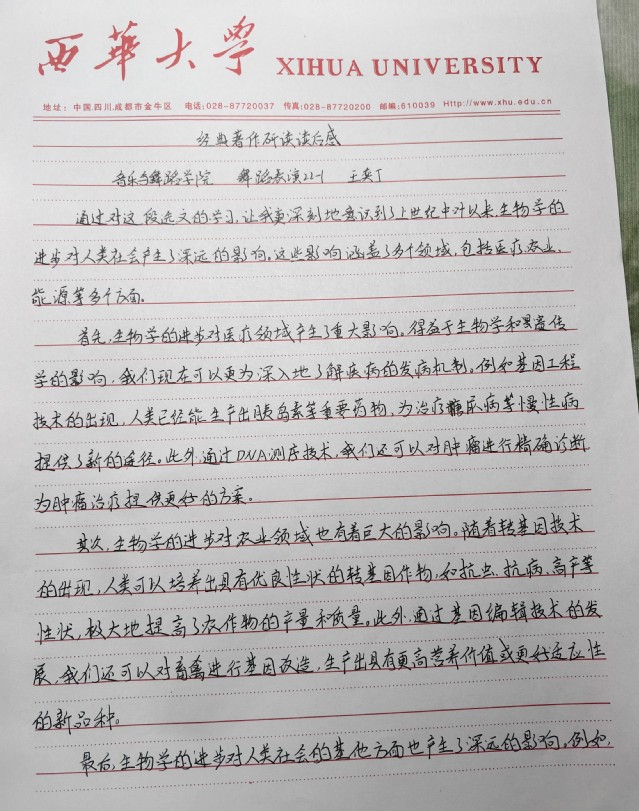 西華大学 XIHUA UNIVERSITY
地址：中国.四川.成都市金牛区 电话:028-87720037 传真:028-87720200 邮编:610039 Http://www.xhu.edu.cn
经典著作研读读后感
音乐与舞蹈学院 舞蹈表演22-1 王奕丁
通过对这段选文的学习,让我更深刻地意识到了上世纪中叶以来,生物学的
进步对人类社会产生了深远的影响。这些影响涵盖了多个领域,包括医疗、农业、
能源等多个方面。
首先,生物学的进步对医疗领域产生了重大影响。得益于生物学和遗传
学的影响,我们现在可以更为深入地了解疾病的发病机制。例如基因工程
技术的出现,人类已经能生产出胰岛素等重要药物,为治疗糖尿病等慢性病
提供了新的途径。此外,通过DNA测序技术,我们还可以对肿瘤进行精确诊断
为肿瘤治疗提供更好的方案。
其次,生物学的进步对农业领域也有着巨大的影响。随着转基因技术
的出现,人类可以培养出具有优良性状的转基因作物,如抗虫、抗病、高产等
性状,极大地提高了农作物的产量和质量。此外,通过基因编辑技术的发
展,我们还可以对畜禽进行基因改造,生产出具有更高营养价值或更好适应性
的新品种。
最后,生物学的进步对人类社会的其他方面也产生了深远的影响。例如,